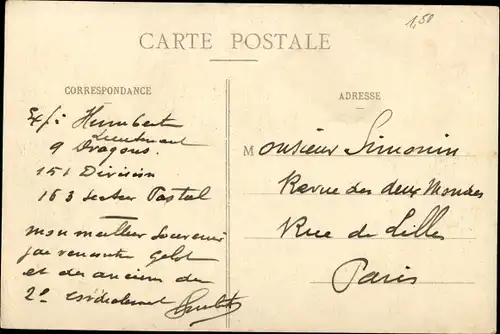 1,50
CARTE POSTALE
CORRESPONDANCE
Humbert
Lieutenant
9 Dragons.
151 Division
163 Secteur Postal
mon meilleur Souvenir
j'ai rencontré
et des anciens du
2e
ADRESSE
Monsieur Simonin
Revue des deux Mondes
Rue de Lille
Paris